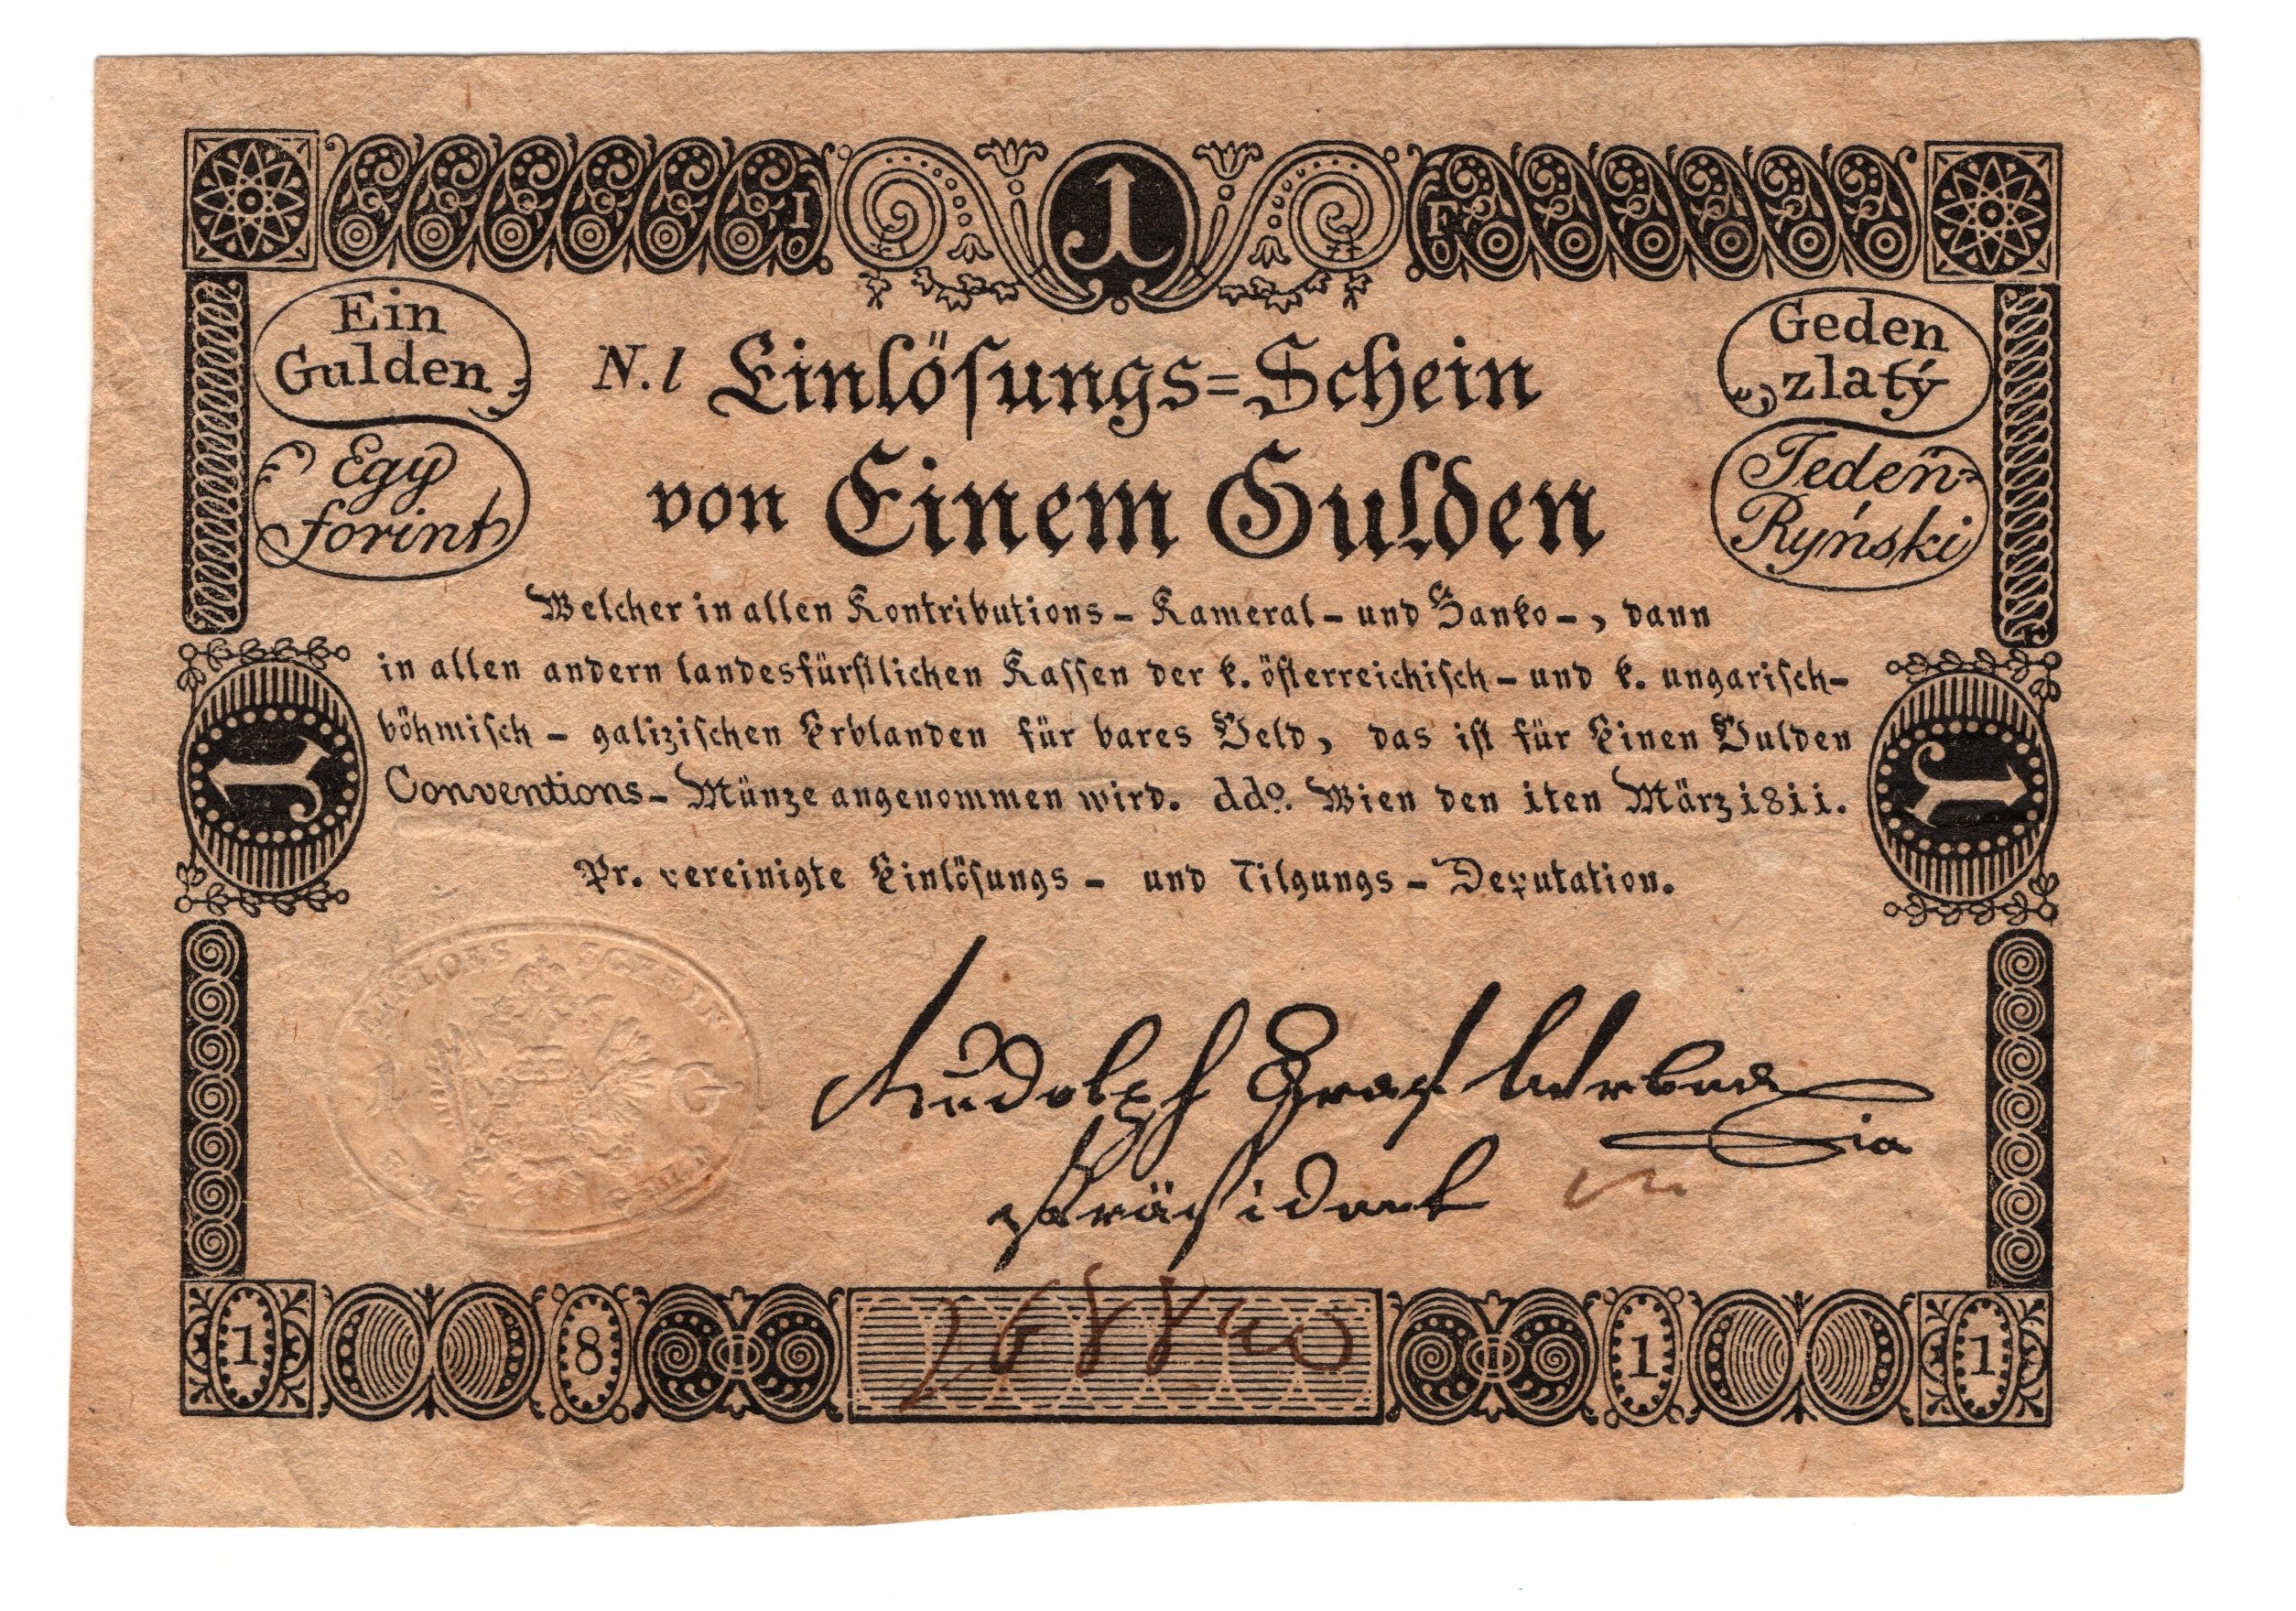 I F
1
Ein
Gulden
Egy
forint
Geden
zlatý
Jeden
Ryński
N. 1 Einlösungs=Schein
von Einem Gulden
Welcher in allen Kontributions- Kameral- und Banko-, dann
in allen andern landesfürstlichen Kassen der k. österreichisch- und k. ungarisch-
böhmisch- galizischen Erblanden für bares Geld, das ist für Einen Gulden
Conventions- Münze angenommen wird. ddo. Wien den 1ten März 1811.
1 1
Pr. vereinigte Einlösungs- und Tilgungs-Deputation.
EINLOES SCHEIN
1 G
Rudolph Graf Wrbna
Präsident
1 8 1 1